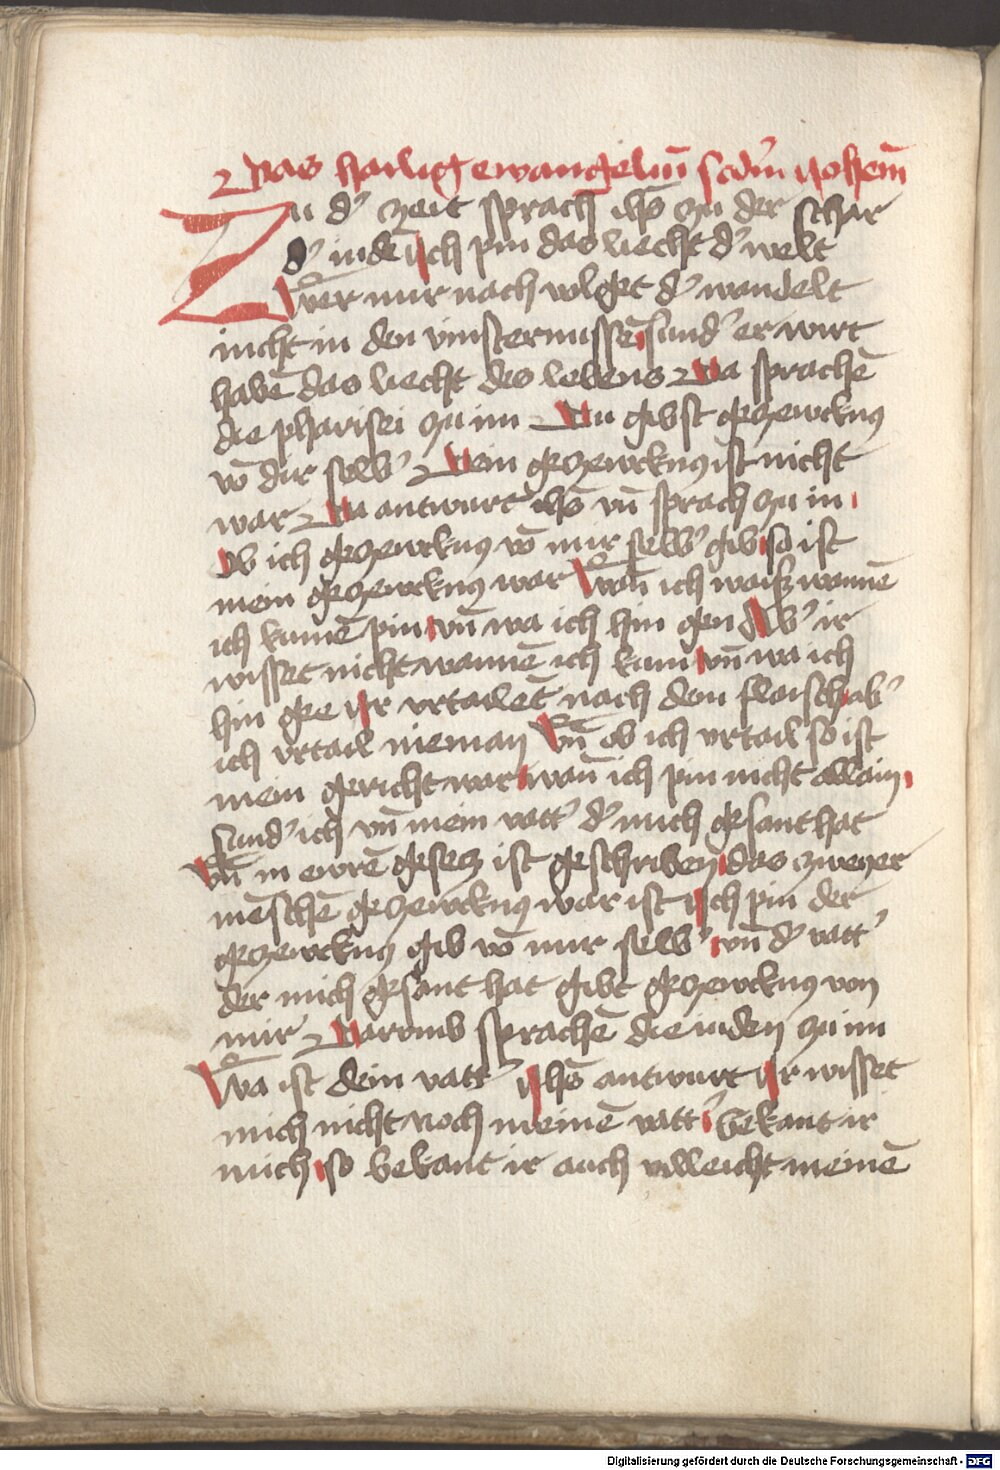 Das heilig ewangeliū scdm̄ Johem̄
Zu d' zeit sprach ihs̄ zu der schar
d' iudē Ich pin das liecht d' welt
Wer mir nach volget d' wandelt
nicht in den vinsternussē sund' er wirt
habē das liecht des lebens Da sprachē
die pharisei zu im Du gibst geczewcknus
vō dir selb' Dein geczewcknus ist nicht
war Da antwurt ihs̄ vn̄ sprach zu in
Ob ich geczewcknus vō mir selb' gib so ist
mein geczewcknus war Wan̄ ich waisz wannē
ich kumē pin vn̄ wa ich hin gen Ab' ir
wisset nicht wannē ich kum vn̄ wa ich
hin gee Ir vrtailet nach dem flaisch ab'
ich vrtail nieman Vn̄ ob ich vrtail so ist
mein gericht war wan̄ ich pin nicht allain
sund' ich vn̄ mein vatt' d' mich gesant hat
Vn̄ in ewrē gesetz ist geschriben das zweyer
mēschē geczewcknus war ist Ich pin der
geczewcknus gib vō mir selb' vn̄ d' vatt'
der mich gesant hat gibt geczewcknus von
mir Darvmb sprachē die iuden zu im
Wa ist dein vatt' Ihs̄ antwurt Ir wisset
mich nicht noch meinē vatt' Bekant ir
mich so bekant ir auch villeicht meinē
Digitalisierung gefördert durch die Deutsche Forschungsgemeinschaft - DFG